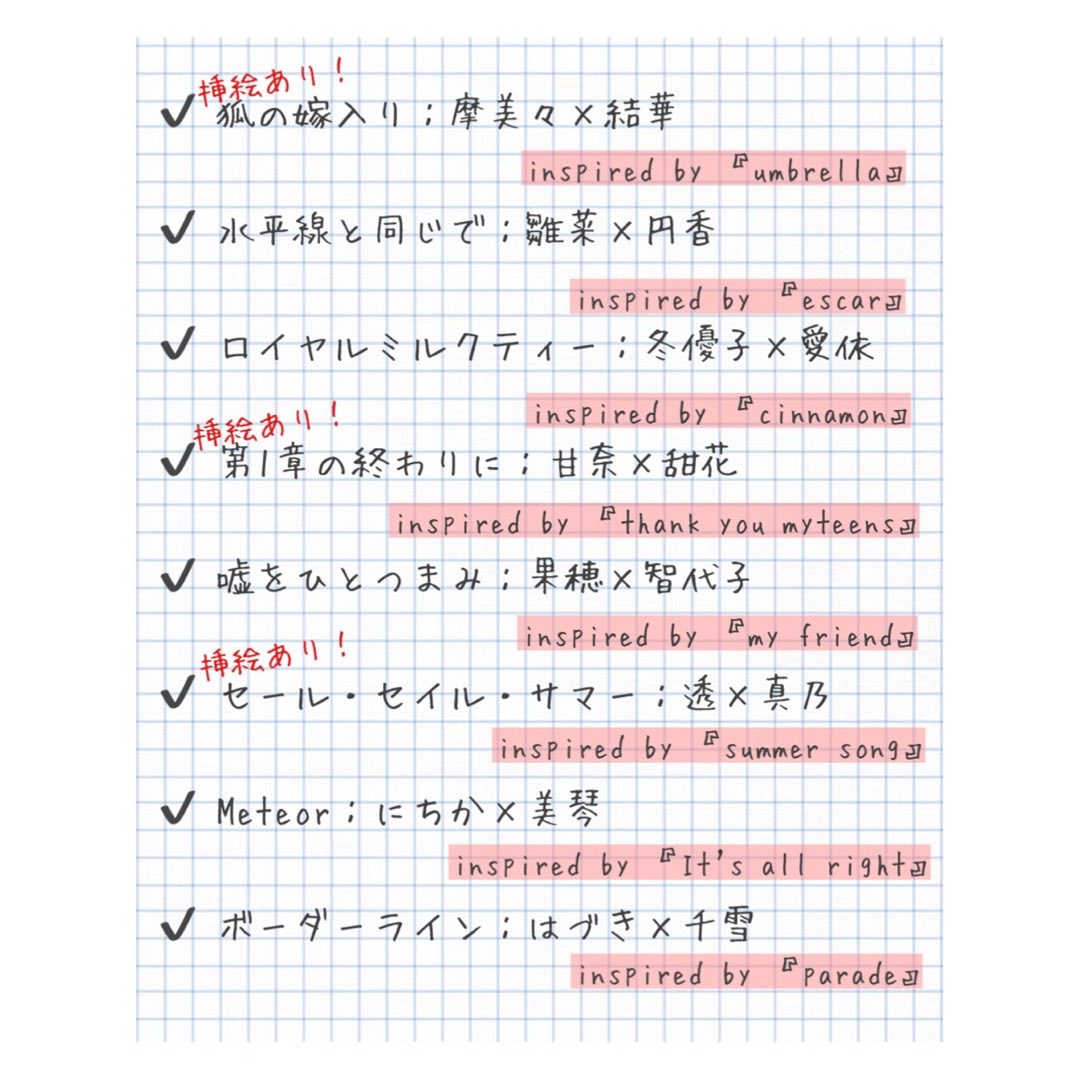 挿絵あり!
狐の嫁入り;摩美々×結華
inspired by 『umbrella』
水平線と同じで;雛菜×円香
inspired by 『escar』
ロイヤルミルクティー;冬優子×愛依
inspired by 『cinnamon』
挿絵あり!
第1章の終わりに;甘奈×甜花
inspired by 『thank you myteens』
嘘をひとつまみ;果穂×智代子
inspired by 『my friend』
挿絵あり!
セール・セイル・サマー;透×真乃
inspired by 『summer song』
Meteor;にちか×美琴
inspired by 『It's all right』
ボーダーライン;はづき×千雪
inspired by 『parade』